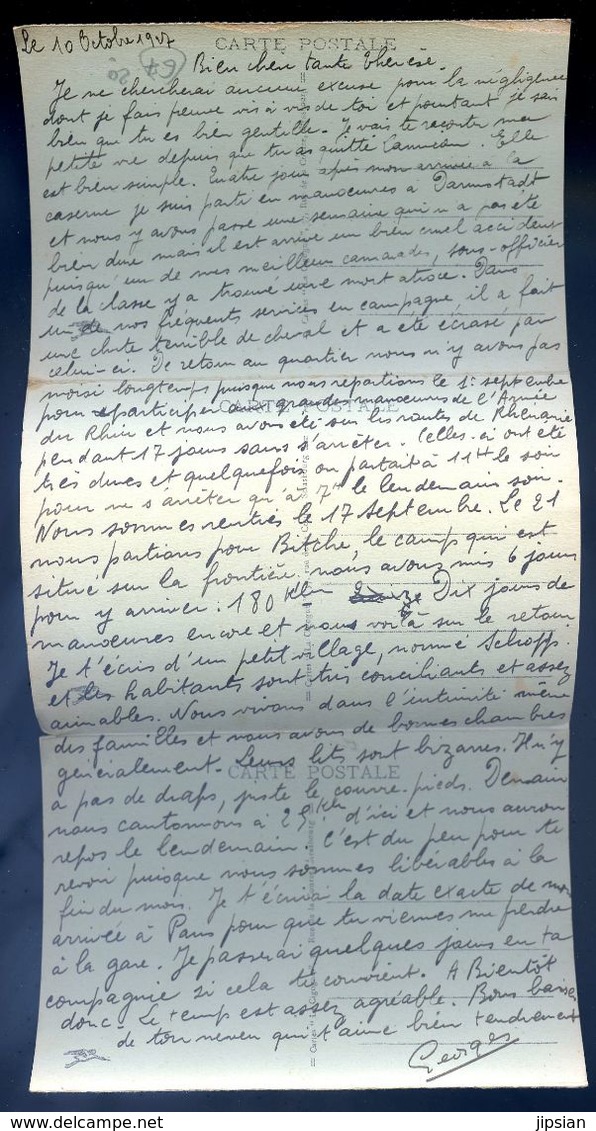 Le 10 Octobre 1927
CARTE POSTALE
67
20
Bien chère tante Thérèse.
Je ne chercherai aucune excuse pour la négligence
dont je fais preuve vis à vis de toi et pourtant je sais
bien que tu es bien gentille. Je vais te raconter ma
petite vie depuis que tu as quitté Elle
est bien simple. Quatre jours après mon arrivée à la
caserne je suis parti en manoeuvres à Darmstadt
et nous y avons passé une semaine qui n'a pas été
bien dure mais il est arrivé un bien cruel accident
puisqu'un de mes meilleurs camarades, sous-officier
de la classe y a trouvé une mort atroce. Dans
un de nos fréquents services en campagne, il a fait
une chute terrible de cheval et a été écrasé par
celui-ci. De retour au quartier nous n'y avons pas
moisi longtemps puisque nous repartions le 1er septembre
pour participer aux grandes manoeuvres de l'Armée
CARTE POSTALE
du Rhin et nous avons été sur les routes de Rhénanie
pendant 17 jours sans s'arrêter. Celles-ci ont été
très dures et quelquefois on partait à 11H le soir
pour ne s'arrêter qu'à 7H le lendemain soir.
Nous sommes rentrés le 17 Septembre. Le 21
nous partions pour Bitche, le camp qui est
situé sur la frontière, nous avons mis 6 jours
pour y arriver. 180 Klm Dix jours de
manoeuvres encore et nous voilà sur le retour.
Je t'écris d'un petit village, nommé Schopp
et les habitants sont très conciliants et assez
aimables. Nous vivons dans l'intimité même
des familles et nous avons de bonnes chambres
généralement. Leurs lits sont bizarres. Il n'y
CARTE POSTALE
a pas de draps, juste le couvre-pieds. Demain
nous cantonnons à 25 Klm d'ici et nous aurons
repos le lendemain. C'est du peu pour te
revoir puisque nous sommes libérables à la
fin du mois. Je t'écrirai la date exacte de mon
arrivée à Paris pour que tu viennes me prendre
à la gare. Je passerai quelques jours en ta
compagnie si cela te convient. A Bientôt
donc. Le temp est assez agréable. Bons baisers
de ton neveu qui t'aime bien tendrement
Georges
© jipsian